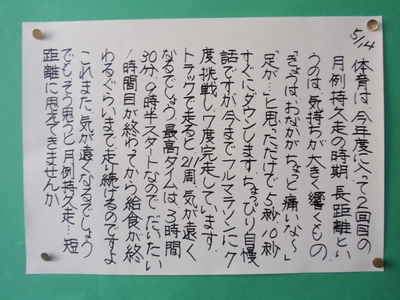 5/14
体育は、今年度に入って2回目の
月例持久走の時期。長距離とい
うのは、気持ちが大きく響くもの
「きょうは、おなかがちょっと痛いな〜」
足が…」と思っただけで5秒、10秒
すぐにダウンします。ちょっぴり自慢
話ですが、今までフルマラソンに7
度挑戦し、7度完走しています。
トラックで走ると211周。気が遠く
なるでしょう。最高タイムは、3時間
30分。9時半スタートなので、だいたい
1時間目が終わってから給食が終
わるぐらいまで走り続けるのですよ
これまた、気が遠くなるでしょう
でも、そう思うと月例持久走…短
距離に思えてきませんか